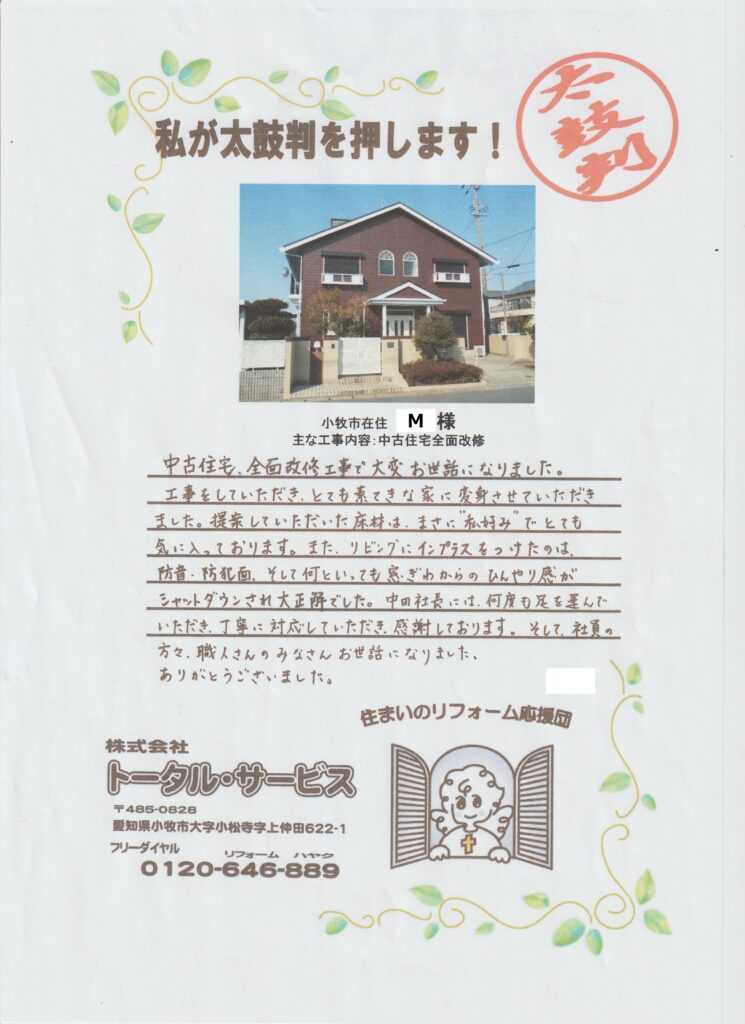 私が太鼓判を押します！
太鼓判
小牧市在住 M 様
主な工事内容：中古住宅全面改修
中古住宅、全面改修工事で大変お世話になりました。
工事をしていただき、とても素てきな家に変身させていただき
ました。提案していただいた床材は、まさに"私好み"でとても
気に入っております。また、リビングにインプラスをつけたのは、
防音・防犯面、そして何といっても窓ぎわからのひんやり感が
シャットダウンされ大正解でした。中田社長には、何度も足を運んで
いただき、丁寧に対応していただき、感謝しております。そして、社員の
方々、職人さんのみなさんお世話になりました。
ありがとうございました。
住まいのリフォーム応援団
株式会社
トータル・サービス
〒485-0828
愛知県小牧市大字小松寺字上仲田622-1
フリーダイヤル リフォーム ハヤク
0120-646-889